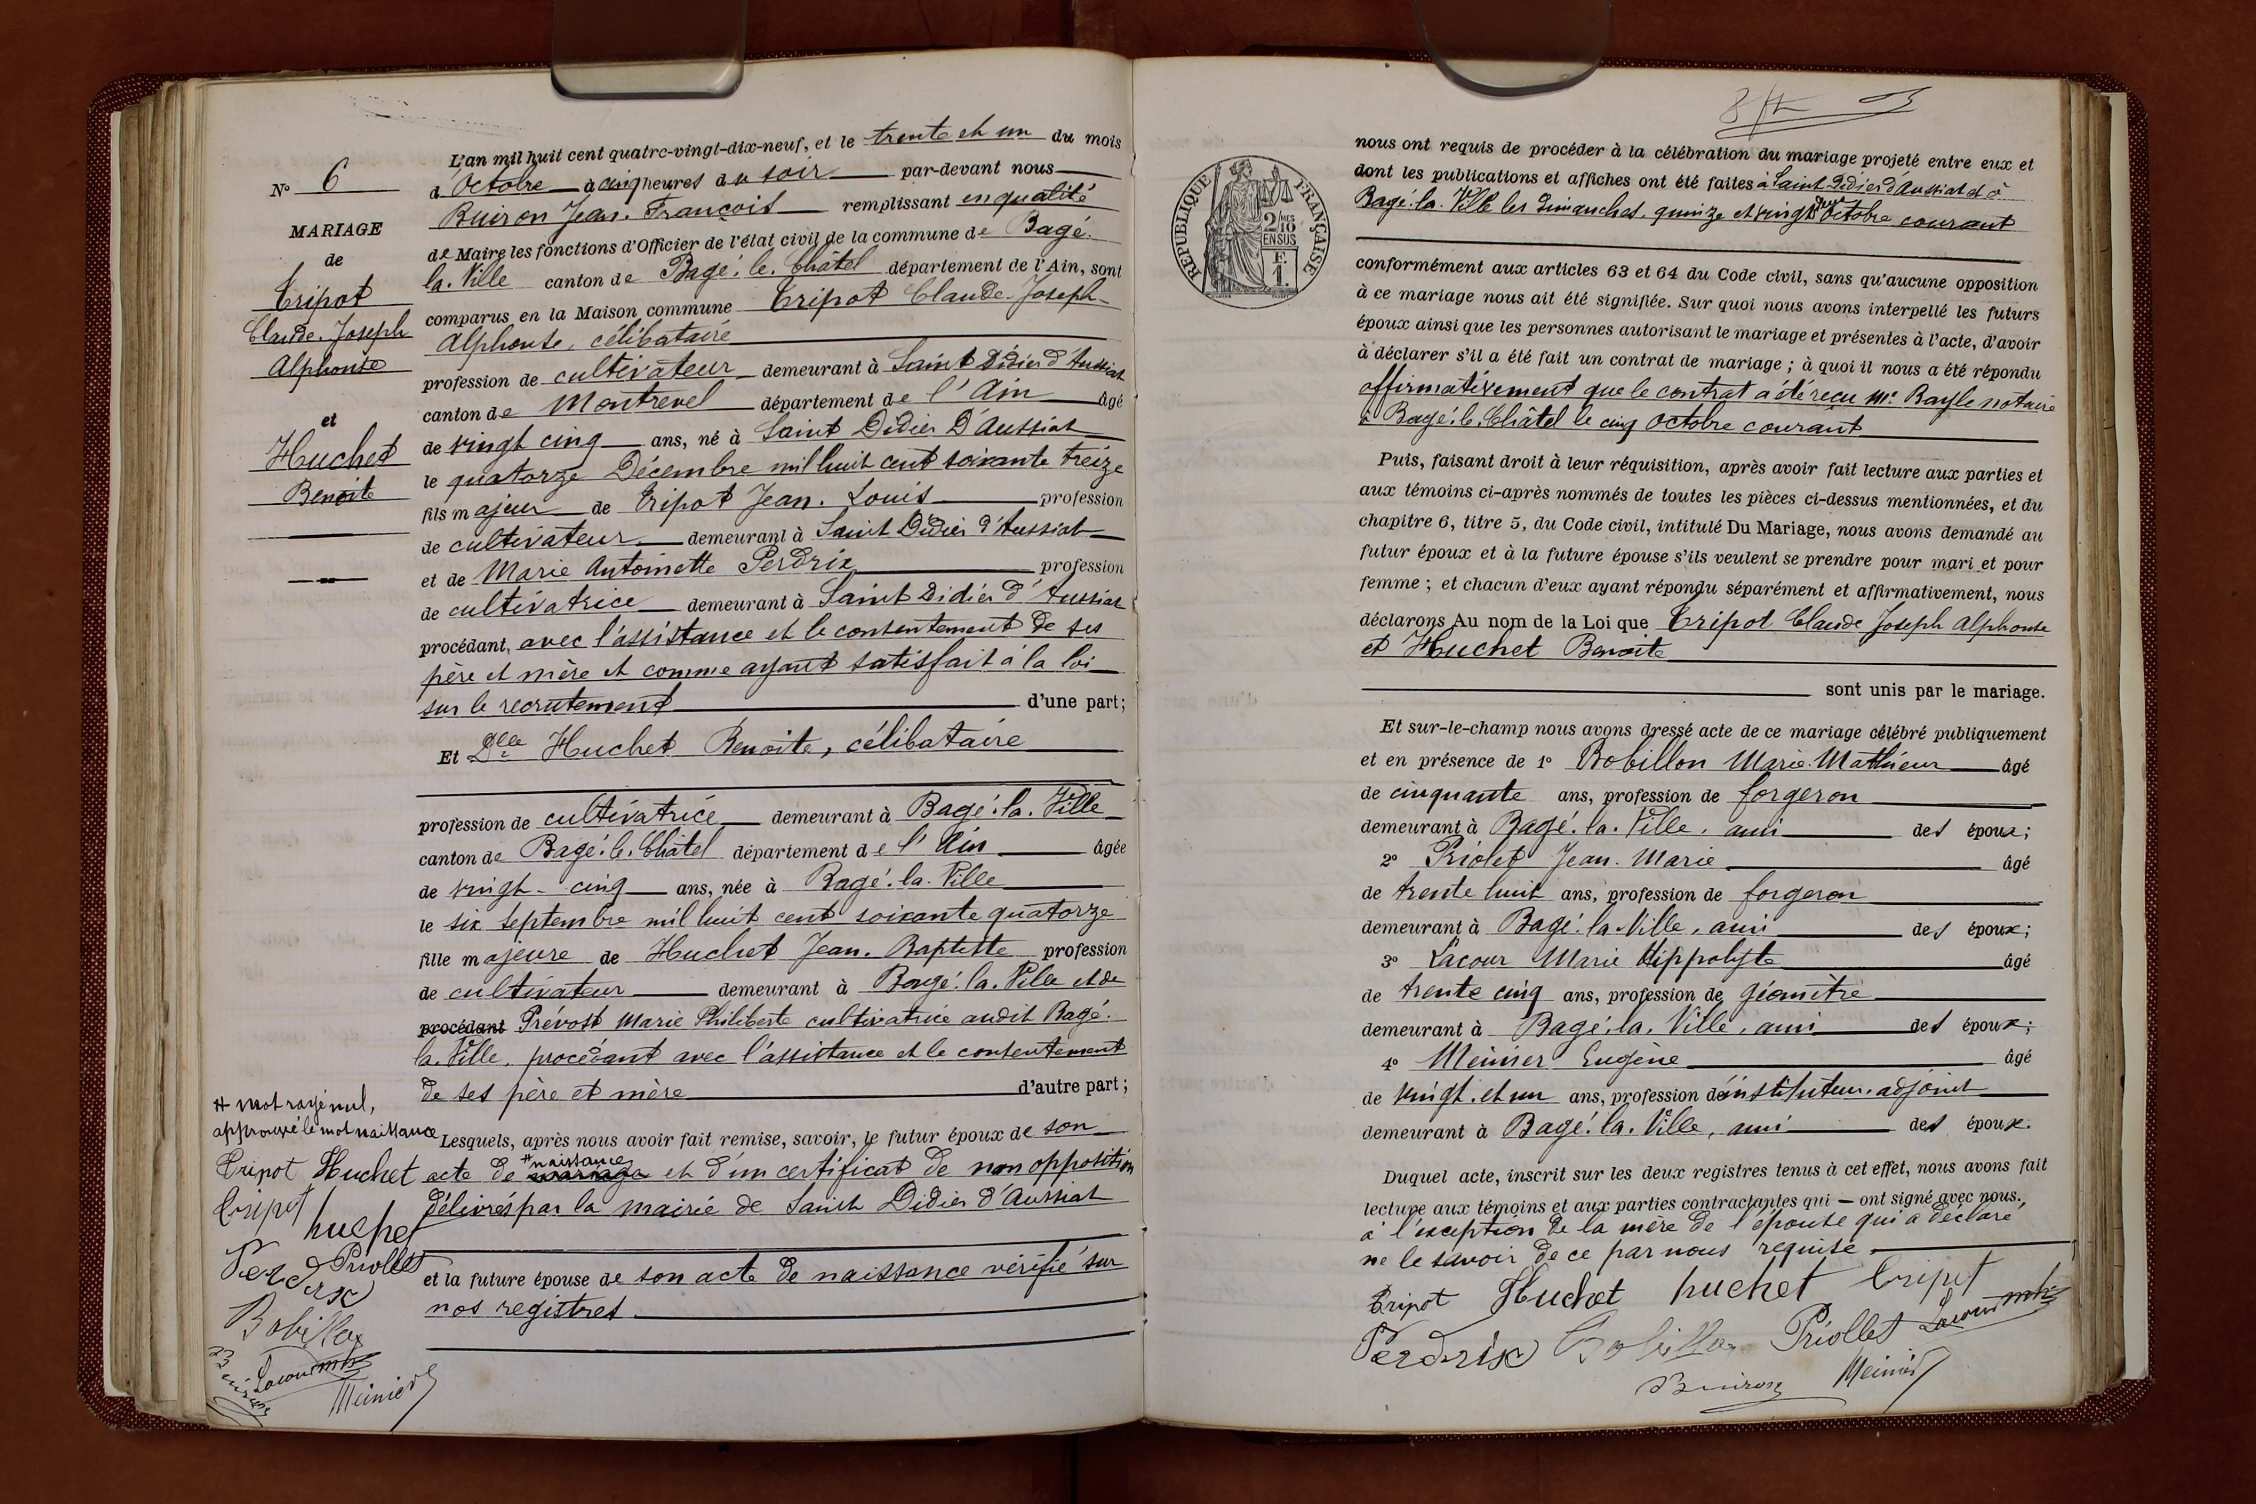 N° 6
MARIAGE
de
Tripot
Claude. Joseph
Alphonse
et
Huchet
Benoite
L'an mil huit cent quatre-vingt-dix-neuf, et le trente et un du mois
d'Octobre à cinq heures du soir par-devant nous
Buiron Jean. François remplissant en qualité
de Maire les fonctions d'Officier de l'état civil de la commune de Bagé.
la. Ville canton de Bagé. le. Châtel département de l'Ain, sont
comparus en la Maison commune Tripot Claude. Joseph
Alphonse, célibataire
profession de cultivateur demeurant à Saint Didier d'Aussiat
canton de Montrevel département de l'Ain âgé
de vingt cinq ans, né à Saint Didier D'Aussiat
le quatorze Décembre mil huit cent soixante treize
fils majeur de Tripot Jean. Louis profession
de cultivateur demeurant à Saint Didier d'Aussiat
et de Marie Antoinette Perdrix profession
de cultivatrice demeurant à Saint Didier d'Aussiat
procédant, avec l'assistance et le consentement de ses
père et mère et comme ayant satisfait à la loi
sur le recrutement d'une part;
Et Dlle Huchet Benoite, célibataire
profession de cultivatrice demeurant à Bagé. la. Ville
canton de Bagé. le. Châtel département de l'Ain âgée
de vingt-cinq ans, née à Bagé. la. Ville
le six septembre mil huit cent soixante quatorze
fille majeure de Huchet Jean. Baptiste profession
de cultivateur demeurant à Bagé. la. Ville et de
procédant Prévost Marie Philiberte cultivatrice audit Bagé.
la. Ville, procédant avec l'assistance et le consentement
de ses père et mère d'autre part;
# mot rayé nul,
approuvé le mot naissance
Lesquels, après nous avoir fait remise, savoir, le futur époux de son
acte de mariage # naissance et d'un certificat de non opposition
délivrés par la mairie de Saint Didier d'Aussiat
et la future épouse de son acte de naissance vérifié sur
nos registres
Tripot Huchet
Tripot huchet
Perdrix Priollet
Bobillon
Buiron Lacour mh
Meinier
nous ont requis de procéder à la célébration du mariage projeté entre eux et
dont les publications et affiches ont été faites à Saint Didier d'Aussiat et à
Bagé. la. Ville les Dimanches, quinze et vingt deux Octobre courant
RÉPUBLIQUE FRANÇAISE
2/10 MES
EN SUS
F.
1.
conformément aux articles 63 et 64 du Code civil, sans qu'aucune opposition
à ce mariage nous ait été signifiée. Sur quoi nous avons interpellé les futurs
époux ainsi que les personnes autorisant le mariage et présentes à l'acte, d'avoir
à déclarer s'il a été fait un contrat de mariage; à quoi il nous a été répondu
affirmativement que le contrat a été reçu Me Bayle notaire
à Bagé. le. Châtel le cinq Octobre courant
Puis, faisant droit à leur réquisition, après avoir fait lecture aux parties et
aux témoins ci-après nommés de toutes les pièces ci-dessus mentionnées, et du
chapitre 6, titre 5, du Code civil, intitulé Du Mariage, nous avons demandé au
futur époux et à la future épouse s'ils veulent se prendre pour mari et pour
femme; et chacun d'eux ayant répondu séparément et affirmativement, nous
déclarons Au nom de la Loi que Tripot Claude Joseph Alphonse
et Huchet Benoite
sont unis par le mariage.
Et sur-le-champ nous avons dressé acte de ce mariage célébré publiquement
et en présence de 1° Bobillon Marie. Mathieu âgé
de cinquante ans, profession de forgeron
demeurant à Bagé. la. Ville, ami des époux;
2° Priolet Jean. Marie âgé
de trente huit ans, profession de forgeron
demeurant à Bagé. la. Ville, ami des époux;
3° Lacour Marie Hippolyte âgé
de trente cinq ans, profession de géomètre
demeurant à Bagé. la. Ville, ami des époux;
4° Meinier Eugène âgé
de vingt. et un ans, profession d'instituteur. adjoint
demeurant à Bagé. la. Ville, ami des époux.
Duquel acte, inscrit sur les deux registres tenus à cet effet, nous avons fait
lecture aux témoins et aux parties contractantes qui — ont signé avec nous.
à l'exception de la mère de l'épouse qui a déclaré
ne le savoir de ce par nous requise
Tripot Huchet huchet Tripot
Perdrix Bobillon Priollet Lacour mh
Buiron Meinier